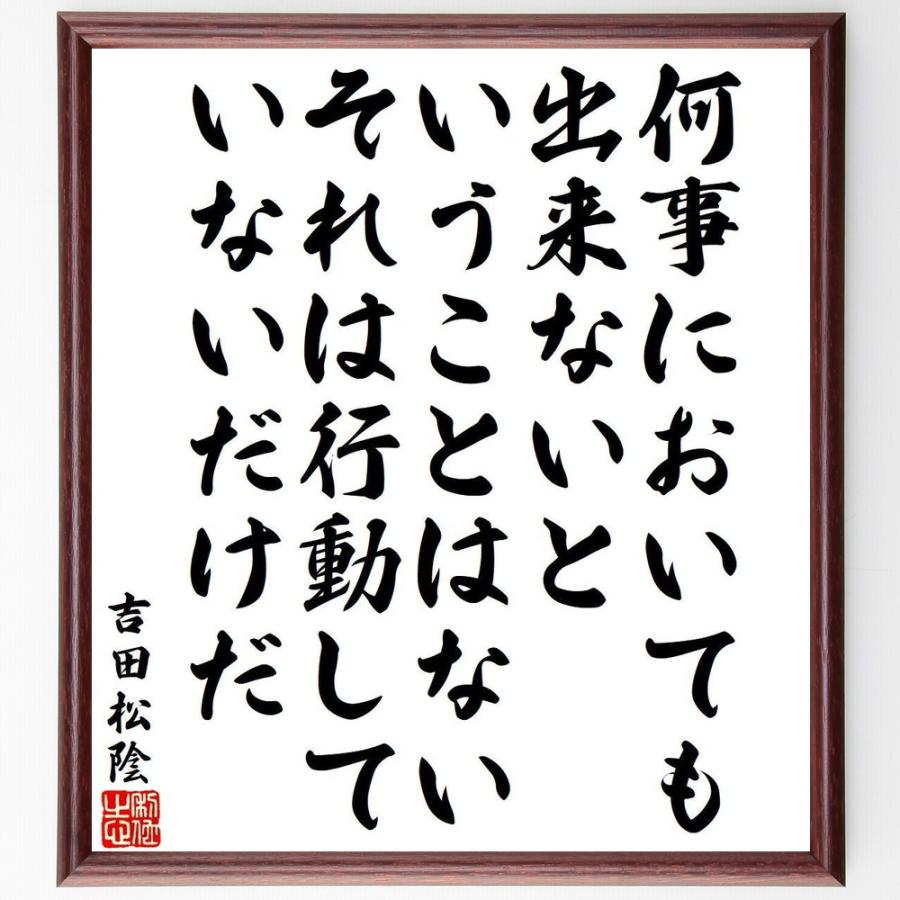 何事においても
出来ないと
いうことはない
それは行動して
いないだけだ
吉田松陰